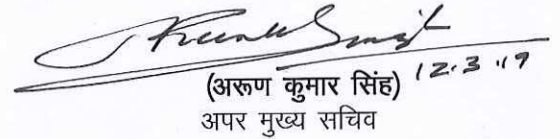 (अरुण कुमार सिंह) 12.3.19
अपर मुख्य सचिव